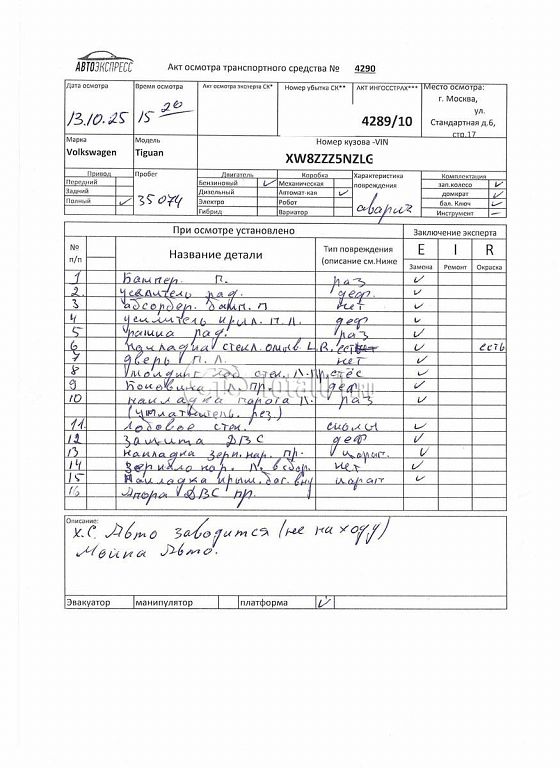 АВТОЭКСПРЕСС
Акт осмотра транспортного средства № 4290
Дата осмотра Время осмотра Акт осмотра эксперта СК* Номер убытка СК** АКТ ИНГОССТРАХ*** Место осмотра:
13.10.25 15 20 4289/10 г. Москва,
ул.
Стандартная д.6,
стр.17
Марка Модель Номер кузова -VIN
Volkswagen Tiguan XW8ZZZ5NZLG
Привод Пробег Двигатель Коробка Характеристика повреждения Комплектация
Передний Бензиновый ✓ Механическая зап.колесо ✓
Задний Дизельный Автомат-кая ✓ домкрат ✓
Полный ✓ 35074 Электро Робот аварич бал. Ключ ✓
Гибрид Вариатор Инструмент –
При осмотре установлено Заключение эксперта
№ п/п Название детали Тип повреждения (описание см.Ниже E I R
Замена Ремонт Окраска
1 Бампер. П. раз ✓
2. усилитель рад. деф. ✓
3 абсорбер. бамп. П нет ✓
4 усилитель крыл. П.Л. деф ✓
5 рамка рад. раз ✓
6 накладка стекл. омыв. L.R. ✓ есть
7 дверь П.Л. нет ✓
8 молдинг стек. Л.пр. ✓
9 Боковина Л.пр. деф ✓
10 накладка порога Л. раз ✓
(уплатнитель. рез)
11. Лобовое стек. сколы ✓
12 Защита ДВС деф ✓
13 накладка зерк. нар. пр. царап. ✓
14 Зеркало нар. Л. в сбор. нет ✓
15 Накладка крыш. баг. вну царап ✓
16 Апора ДВС пр.
Описание:
х.С. Авто заводится (не на ходу)
Мойка Авто.
Эвакуатор манипулятор платформа ✓